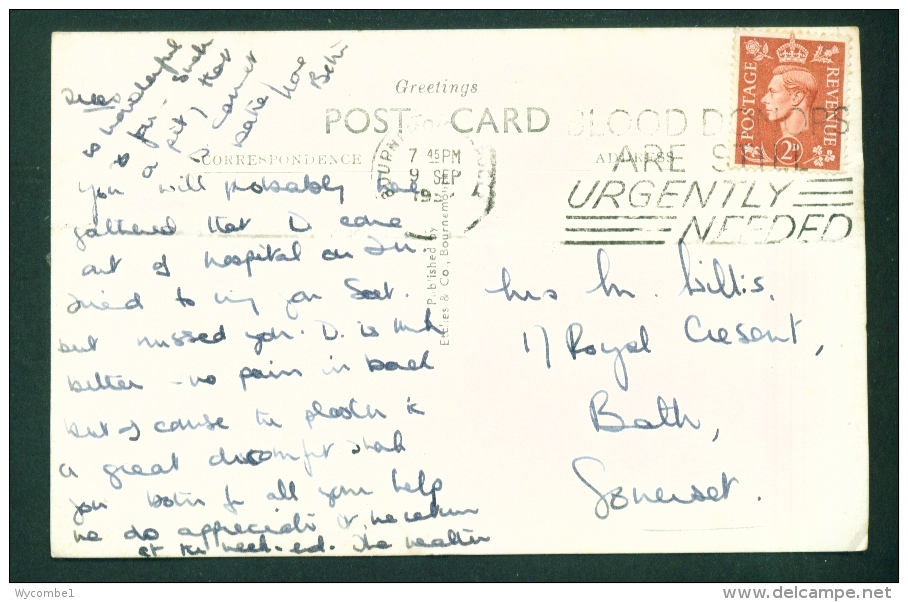 Greetings
POST CARD
CORRESPONDENCE
ADDRESS
BOURN
7 45PM
9 SEP
19
BLOOD DONORS
ARE STILL
URGENTLY
NEEDED
POSTAGE
REVENUE
2D
Published by
& Co., Bournemouth
You will probably have
gathered that D came
out of hospital on
tried to ring you Sat.
but missed you. D. is much
better - no pain in back
but of course the plaster is
a great discomfort thank
you both for all your help
we do appreciate it, we return
at the week-end. The weather
is wonderful
to for such
a pity that
cannot
bathe love
Beth
Mrs M. Willis,
17 Royal Cresent,
Bath,
Somerset.
Wycombe1
delcampe.net